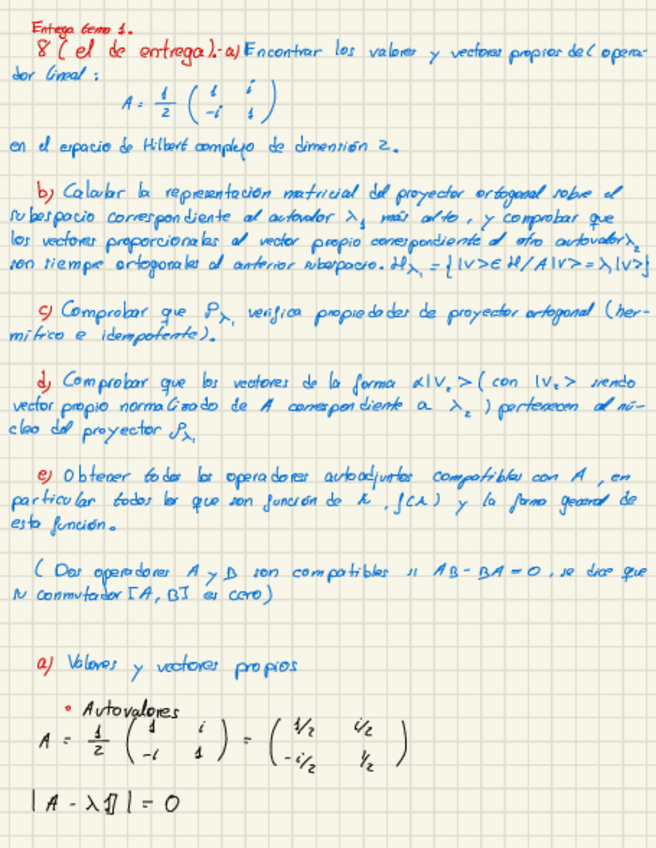 Entrega tema 1.
8 (el de entrega).- a) Encontrar los valores y vectores propios del opera-
dor lineal:
A = 1/2 ( 1 i
-i 1 )
en el espacio de Hilbert complejo de dimensión 2.
b) Calcular la representación matricial del proyector ortogonal sobre el
subespacio correspondiente al autovalor λ₁ más alto, y comprobar que
los vectores proporcionales al vector propio correspondiente al otro autovalor λ₂
son siempre ortogonales al anterior subespacio. ℋλ₁ = {|v>∈ℋ/A|v>=λ|v>}
c) Comprobar que Pλ₁ verifica propiedades de proyector ortogonal (her-
mítico e idempotente).
d) Comprobar que los vectores de la forma α|V₂> (con |V₂> siendo
vector propio normalizado de A correspondiente a λ₂) pertenecen al nú-
cleo del proyector Pλ₁
e) Obtener todos los operadores autoadjuntos compatibles con A, en
particular todos los que son función de A, f(A) y la forma general de
esta función.
(Dos operadores A y B son compatibles si AB-BA=0, se dice que
su conmutador [A, B] es cero)
a) Valores y vectores propios
• Autovalores
A = 1/2 ( 1 i
-i 1 ) = ( 1/2 i/2
-i/2 1/2 )
|A - λ𝟙| = 0